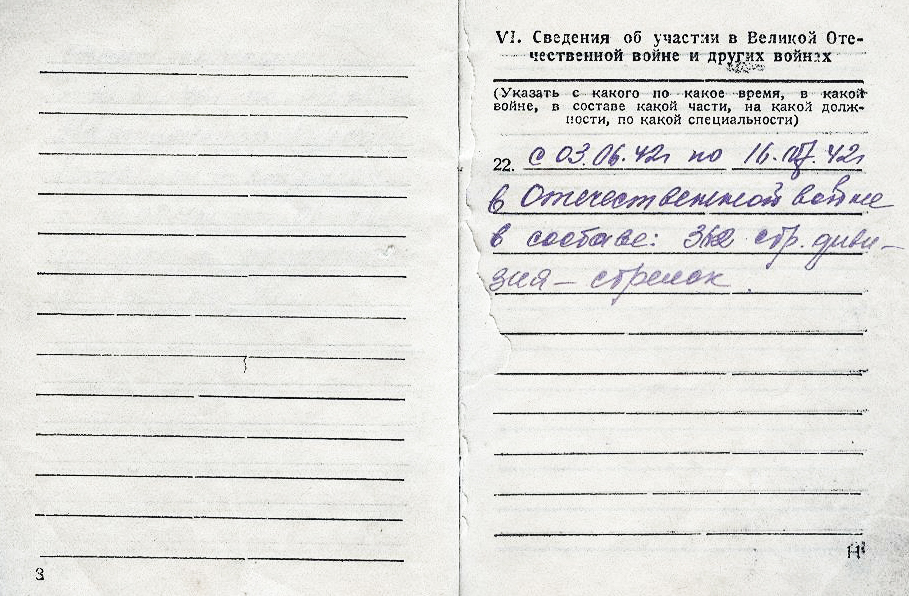 VI. Сведения об участии в Великой Оте-
чественной войне и других войнах
(Указать с какого по какое время, в какой
войне, в составе какой части, на какой долж-
ности, по какой специальности)
22. С 03.06.42г по 16.07.42г
в Отечественной войне
в составе: 312 стр. диви-
зия – стрелок.
8